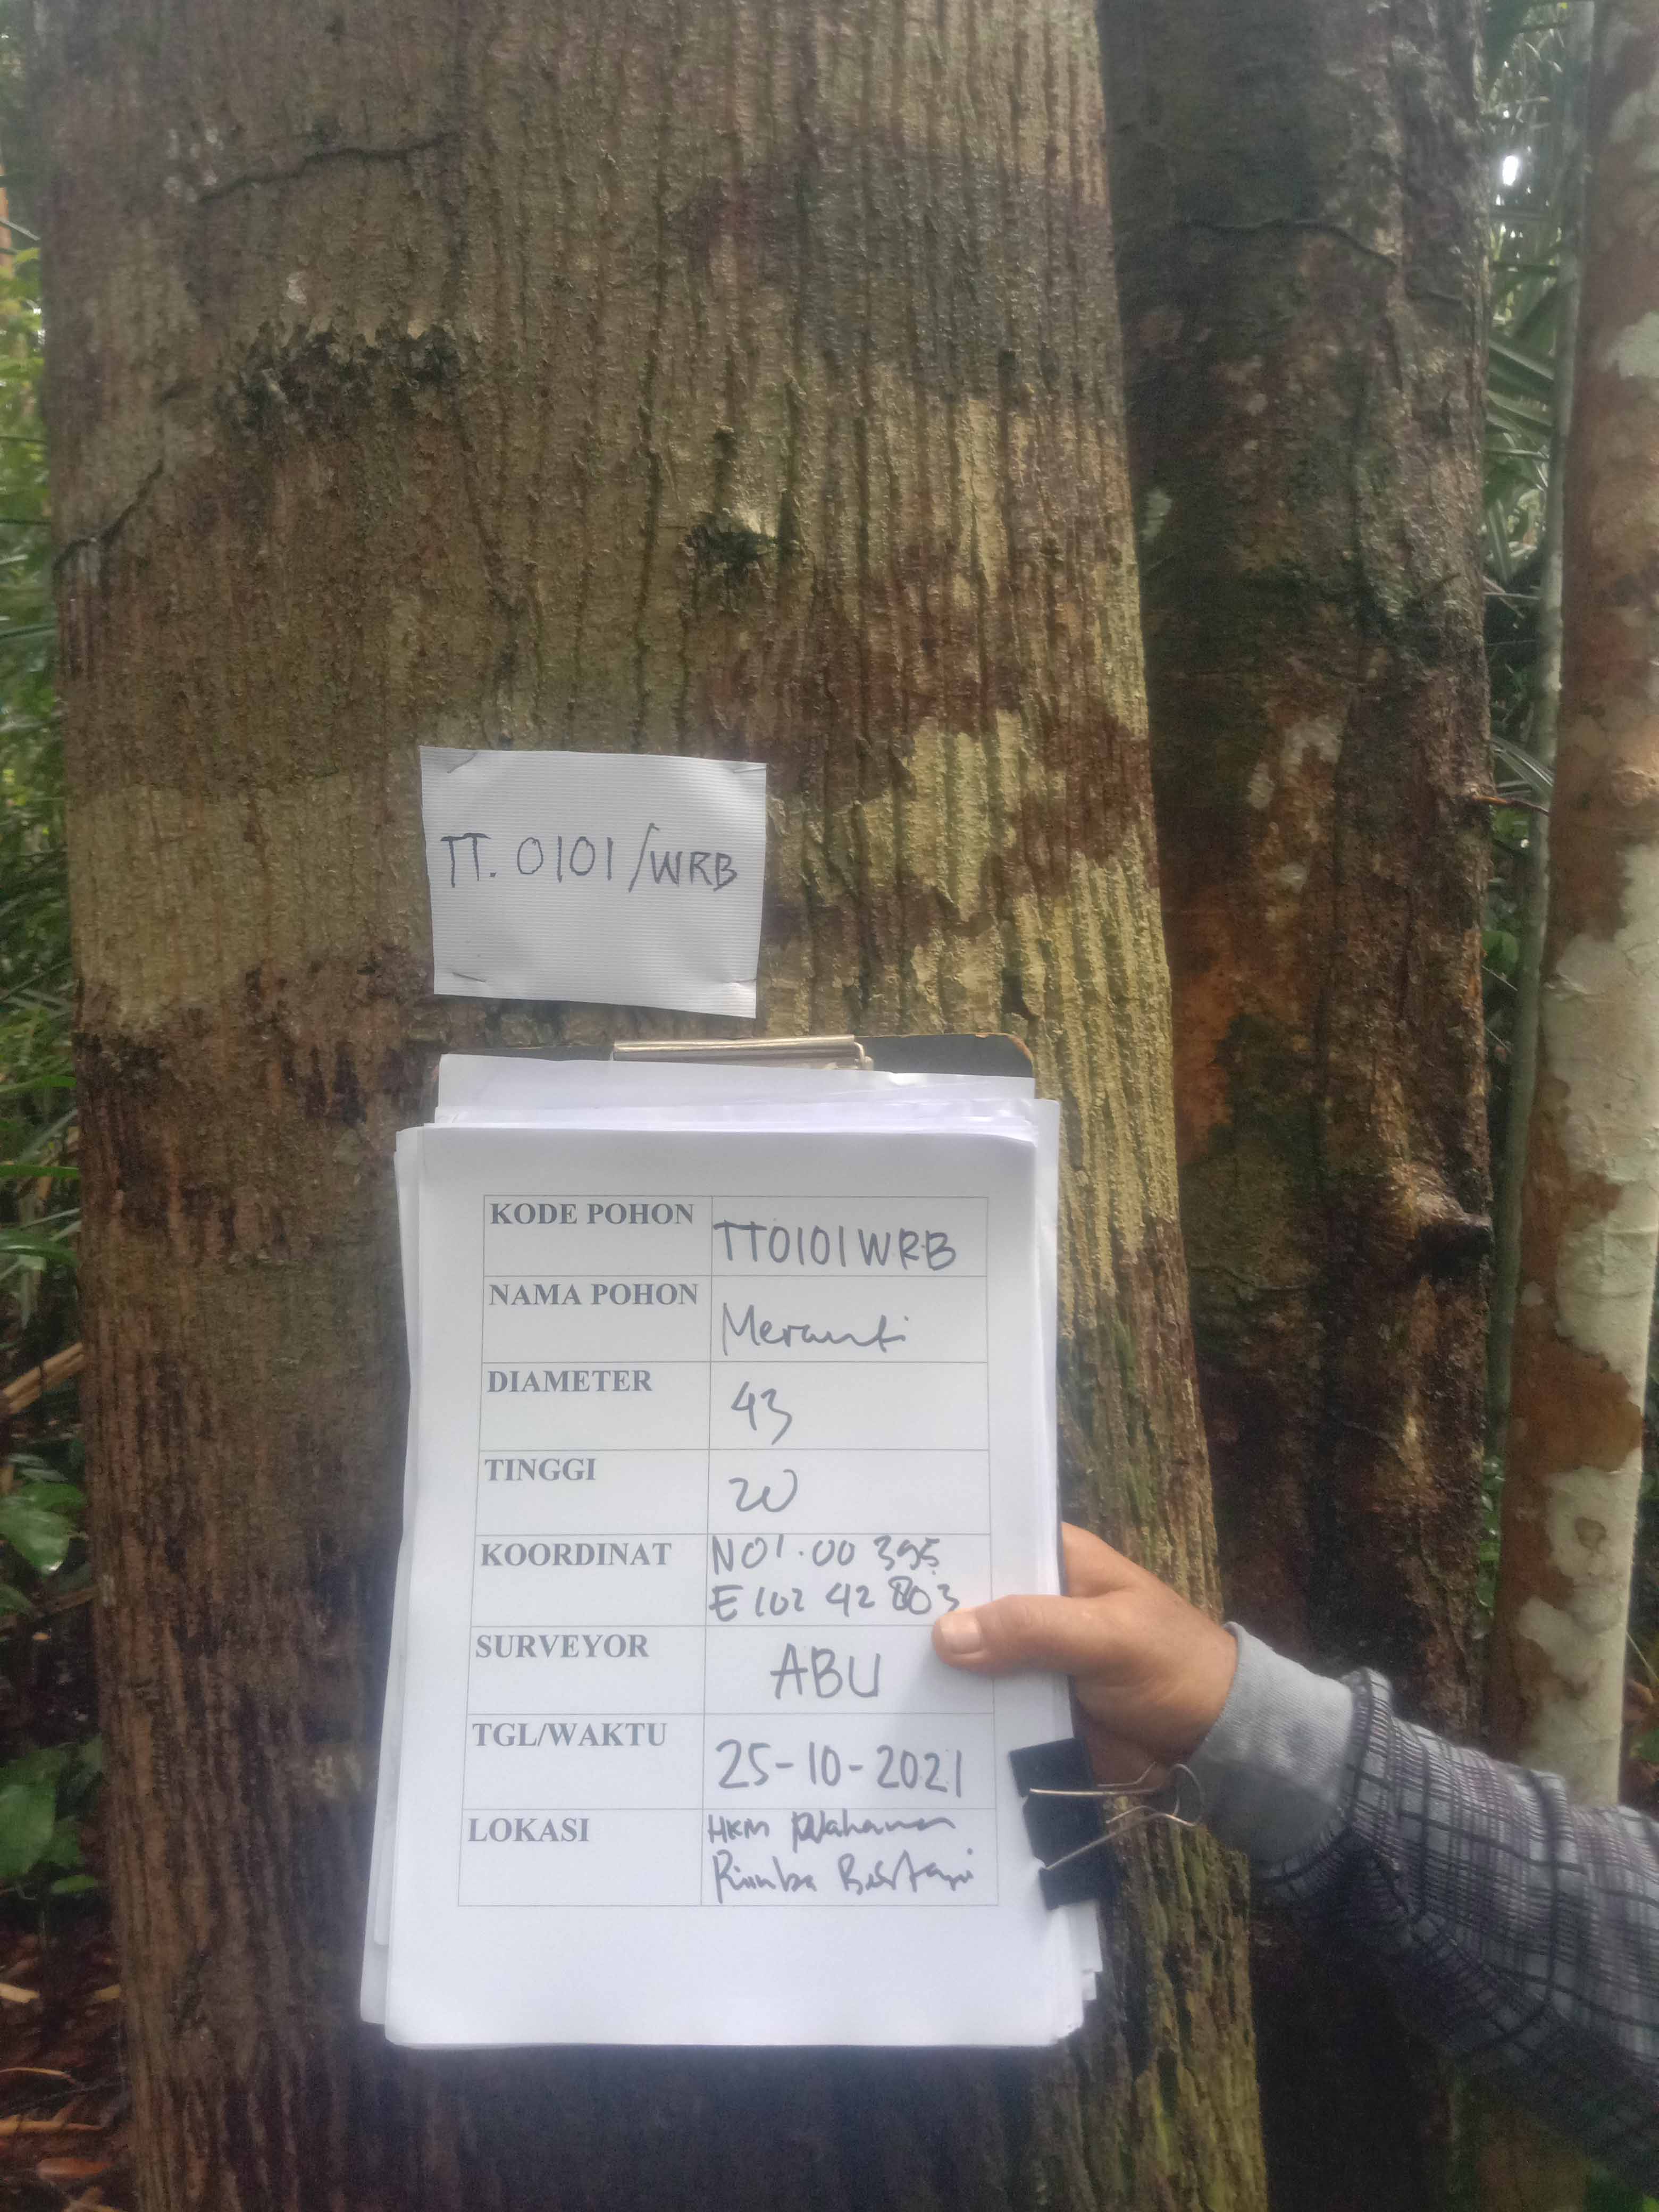 TT. 0101/WRB
KODE POHON TT0101WRB
NAMA POHON Meranti
DIAMETER 43
TINGGI 20
KOORDINAT N01.00 395
E 102 42 803
SURVEYOR ABU
TGL/WAKTU 25-10-2021
LOKASI HKM Wahana
Rimba Bestari